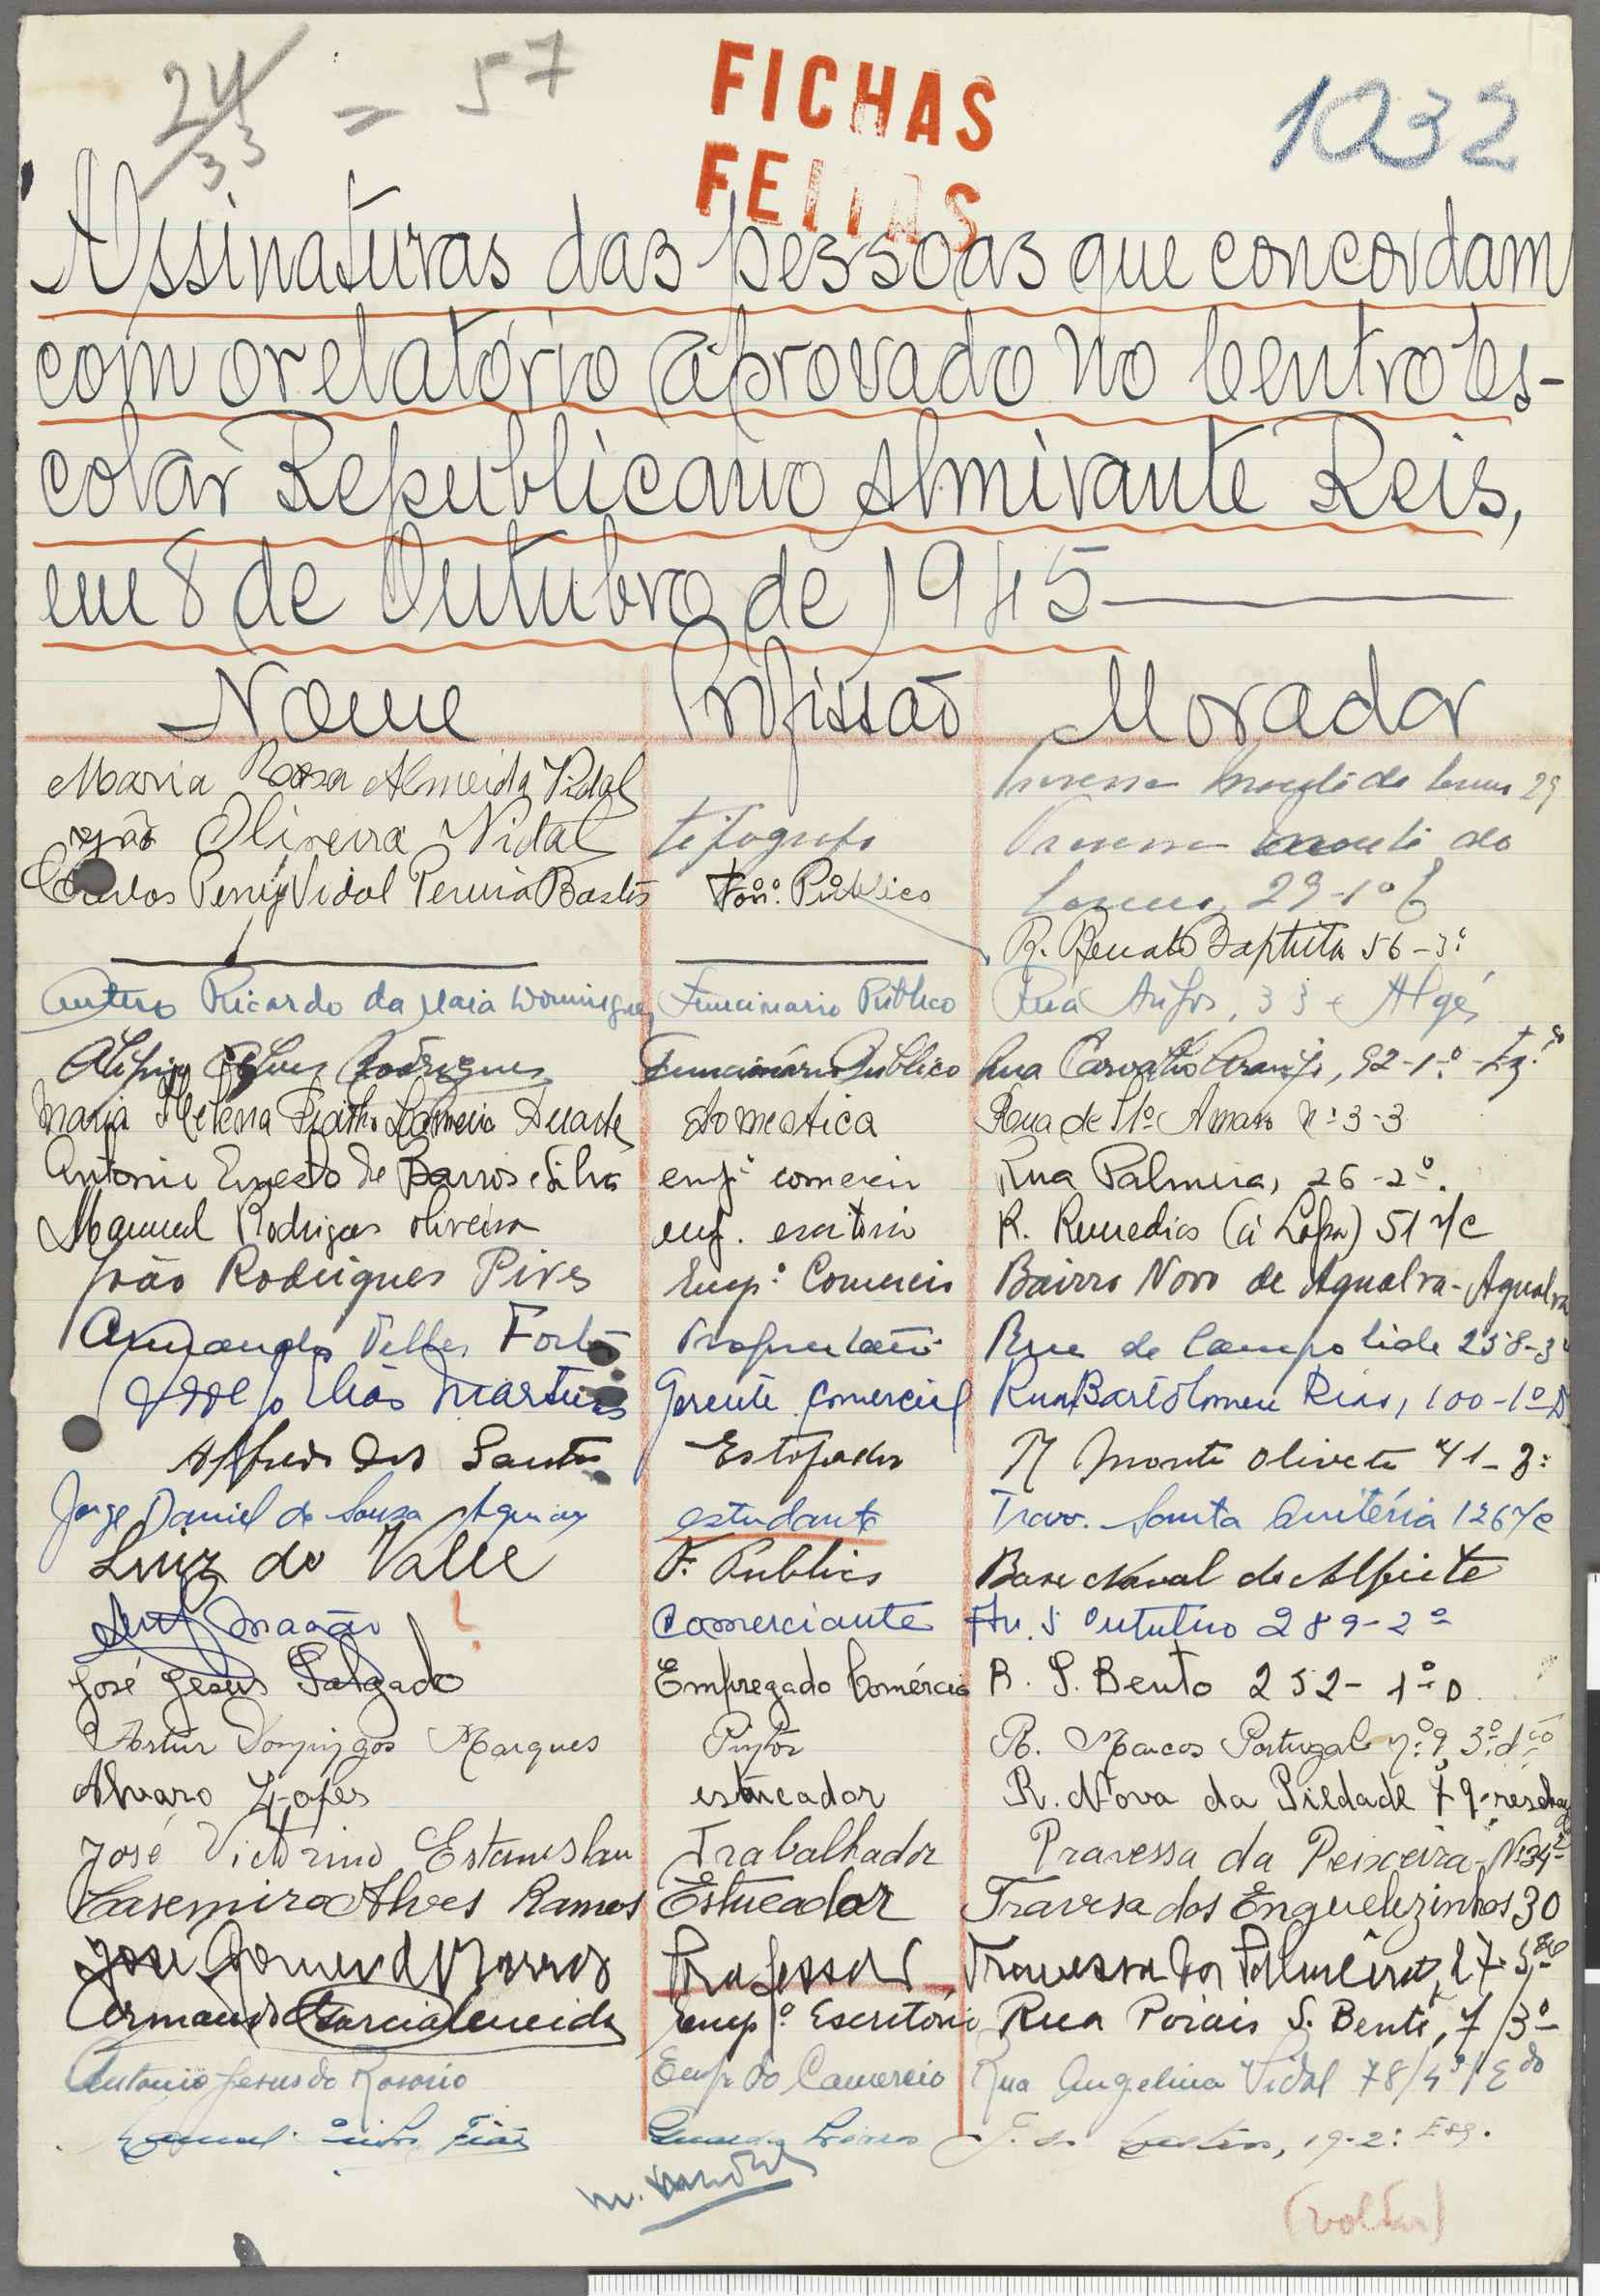 24/33 = 57
FICHAS
FEITAS
1032
Assinaturas das pessoas que concordam
com o relatório aprovado no Centro Es-
colar Republicano Almirante Reis,
em 8 de Outubro de 1945
Nome Profissão Morador
Maria Rosa Almeida Vidal 29
João Oliveira Vidal tipografo Travessa do
Carlos Vidal Pereira Bastos Fonº. Público 29-1º E
R. Renato Baptista 56-3º
Antero Ricardo da Maia Domingues Funcionario Publico Rua 33 Algés
Rodrigues Funcionário Publico Rua Carvalho Araujo, 92-1.º
Maria Helena Duarte domestica Rua de Stº Amaro nº 3-3
Antonio Ernesto de Barros e Silva empº comercio Rua Palmira, 26-2º.
Manuel Rodrigues Oliveira emp. escritorio R. Remedios (à Lapa) 51 r/c
João Rodrigues Pires Empº. Comercio Bairro Novo de Agualva-Agualva
Armando Fortes Proprietario Rua de Campolide 258-3º
Elias Martins Gerente Comercial Rua Bartolomeu Dias, 100-1º D
Alfredo dos Santos Estofador R Monte Olivete 41-3º
Jorge Daniel de Souza Aguiar estudante Trav. Santa Quitéria 126 r/c
Luiz do Valle F. Publico Base Naval do Alfeite
?
Comerciante Av. 5 Outubro 289-2º
José Jesus Salgado Empregado Comércio R. S. Bento 252-1º D
Artur Domingos Marques Pintor R. Marcos Portugal nº 9, 3º dto
Alvaro Lopes estucador R. Nova da Piedade 79
José Victorino Estanislau Trabalhador Travessa da Peixeira Nº 34
Casemiro Alves Ramos Estucador Travesa dos Englezinhos 30
José Gomes Professor Travessa 27
Armando Garcia Almeida Empº. Escritório Rua Poiais S. Bento, 7/3º
Antonio Jesus do Rosario Emp. do Comercio Rua Angelina Vidal 78/4º/Edo
Manuel Guarda Livros 19-2º Esq.
(voltar)